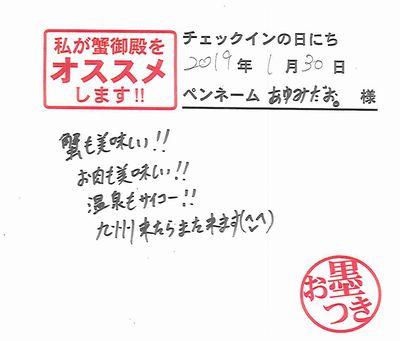 私が蟹御殿を
オススメ
します!!
チェックインの日にち
2019年1月30日
ペンネーム あゆみたお。様
蟹も美味しい!!
お肉も美味しい!!
温泉もサイコー!!
九州来たらまた来ます(^-^)
お墨つき